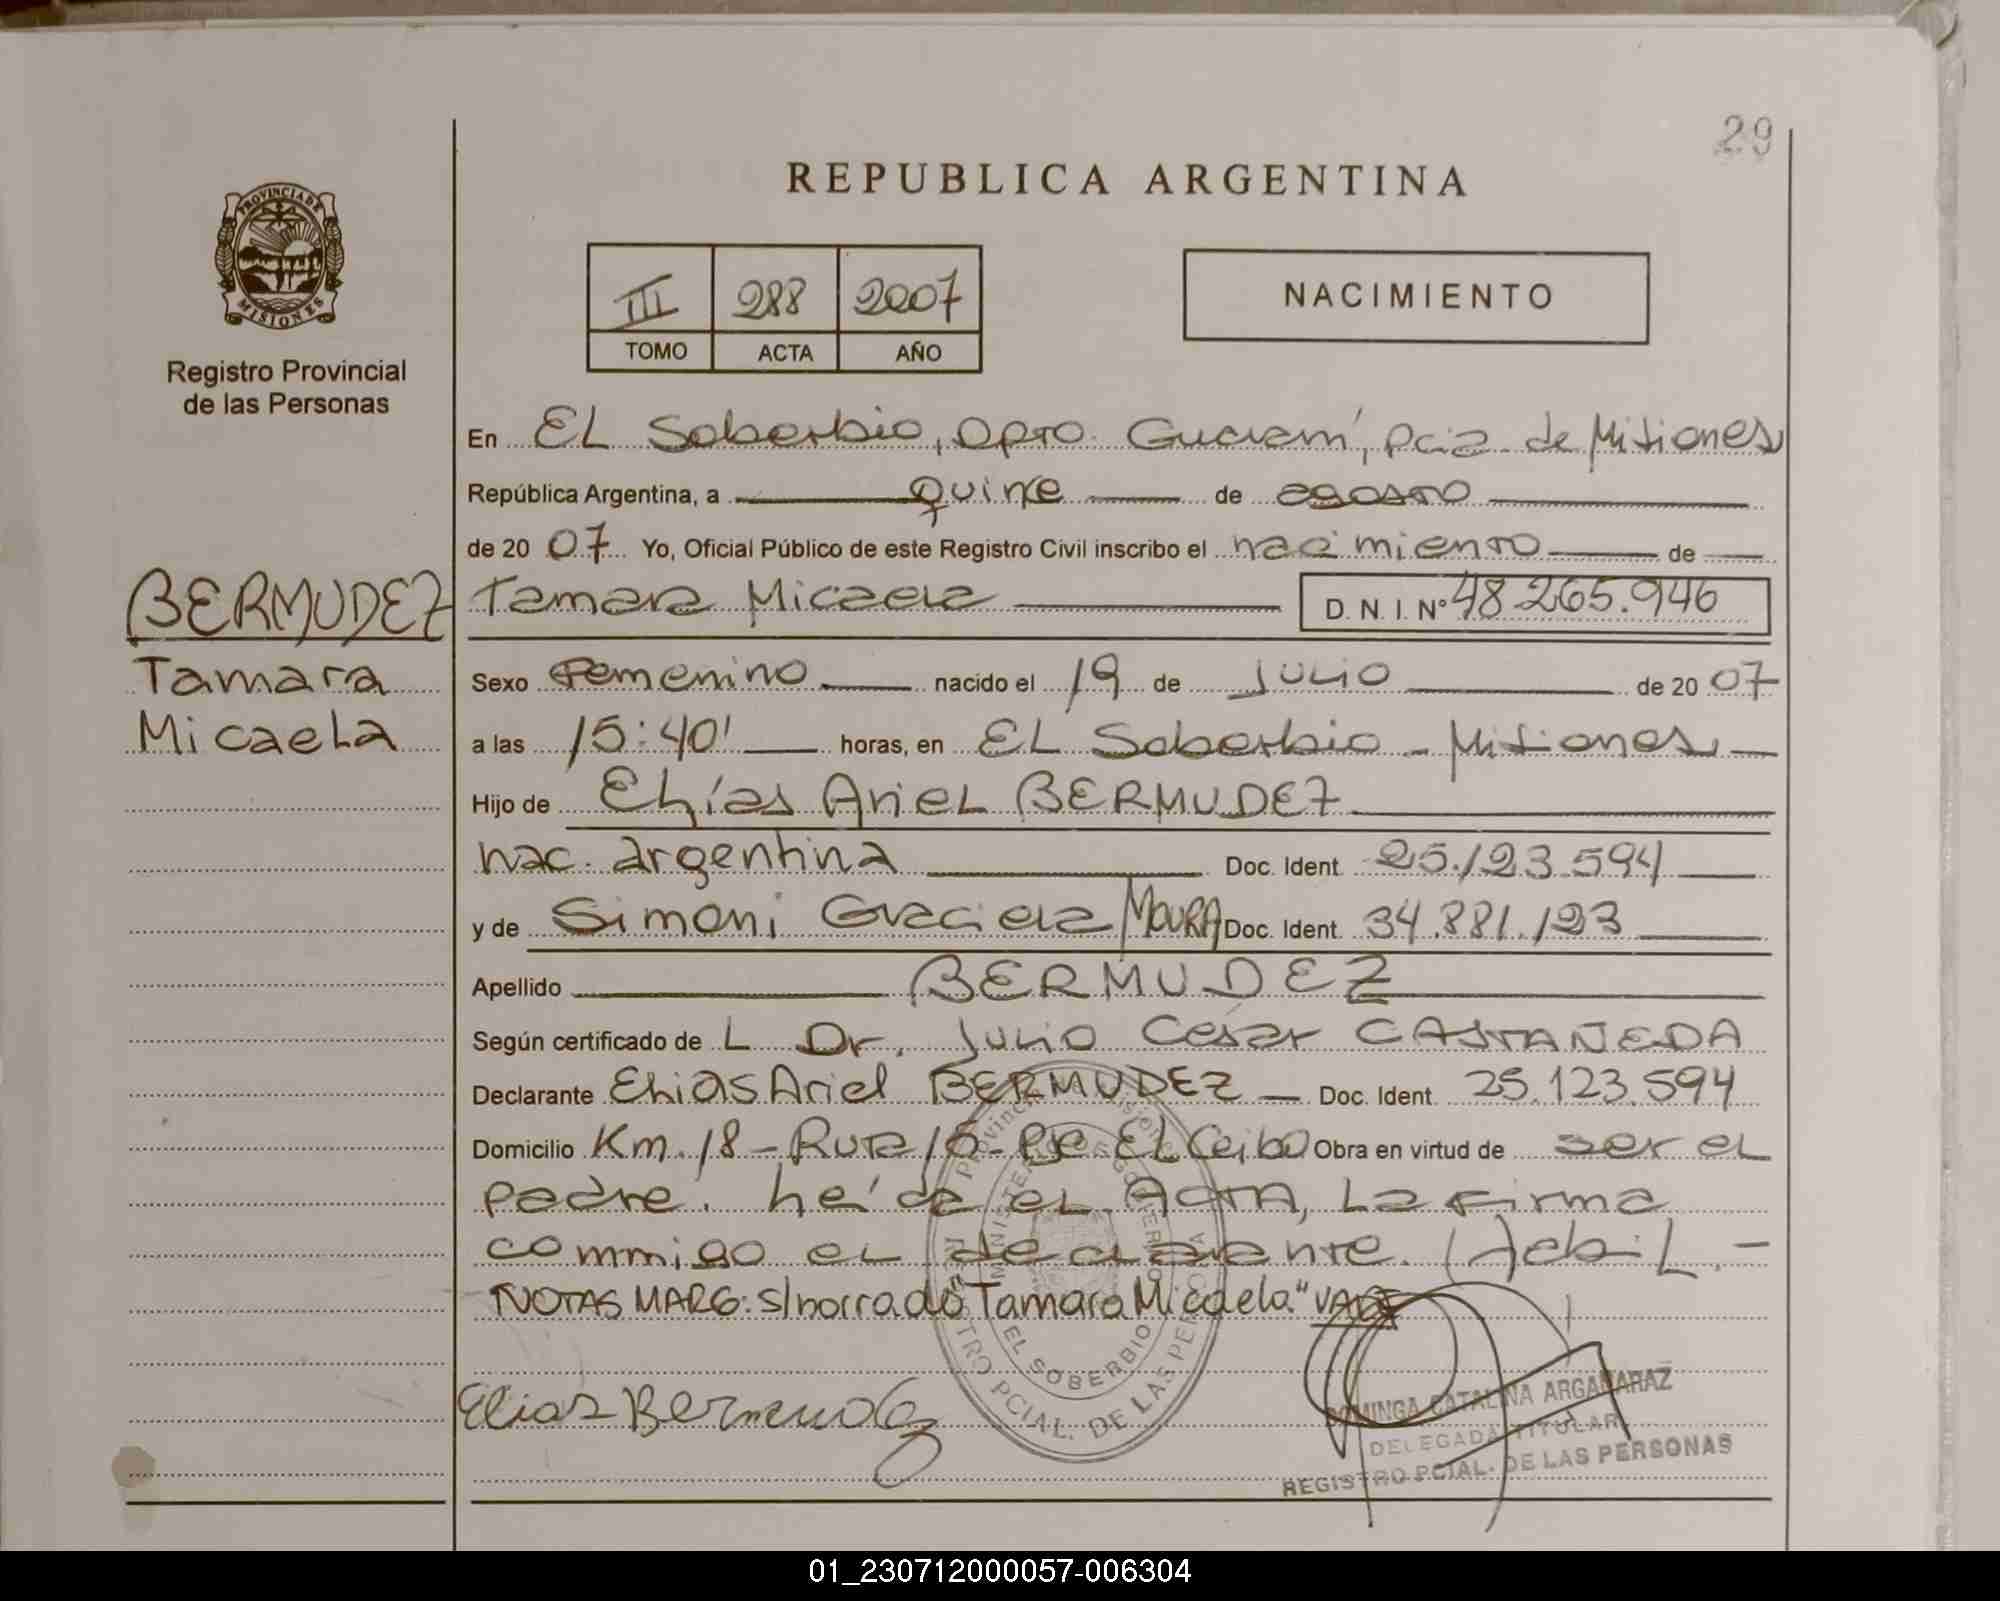 29
REPUBLICA ARGENTINA
PROVINCIA DE
MISIONES
Registro Provincial
de las Personas
III 288 2007
TOMO ACTA AÑO
NACIMIENTO
En EL Soberbio, Dpto. Guaraní, pcia. de Misiones
República Argentina, a quince de agosto
de 20 07 Yo, Oficial Público de este Registro Civil inscribo el nacimiento de
BERMUDEZ
Tamara
Micaela
Tamara Micaela D. N. I. Nº 48.265.946
Sexo Femenino nacido el 19 de Julio de 20 07
a las 15:40' horas, en EL Soberbio - Misiones
Hijo de Elías Ariel BERMUDEZ
nac. argentina Doc. Ident. 25.123.594
y de Simoni Graciela MOURA Doc. Ident. 34.881.123
Apellido BERMUDEZ
Según certificado de L Dr. Julio César CASTAÑEDA
Declarante Elias Ariel BERMUDEZ Doc. Ident. 25.123.594
Domicilio Km. 18 - Ruta 15 - Pje El Ceibo Obra en virtud de ser el
padre. leída el ACTA, La firma
commigo el declarante.
NOTAS MARG: s/borrado Tamara Micaela." VALE
Elias Bermudez
EL SOBERBIO
REGISTRO PCIAL. DE LAS PERSONAS
DOMINGA CATALINA ARGAÑARAZ
DELEGADA TITULAR
REGISTRO PCIAL. DE LAS PERSONAS
01_230712000057-006304